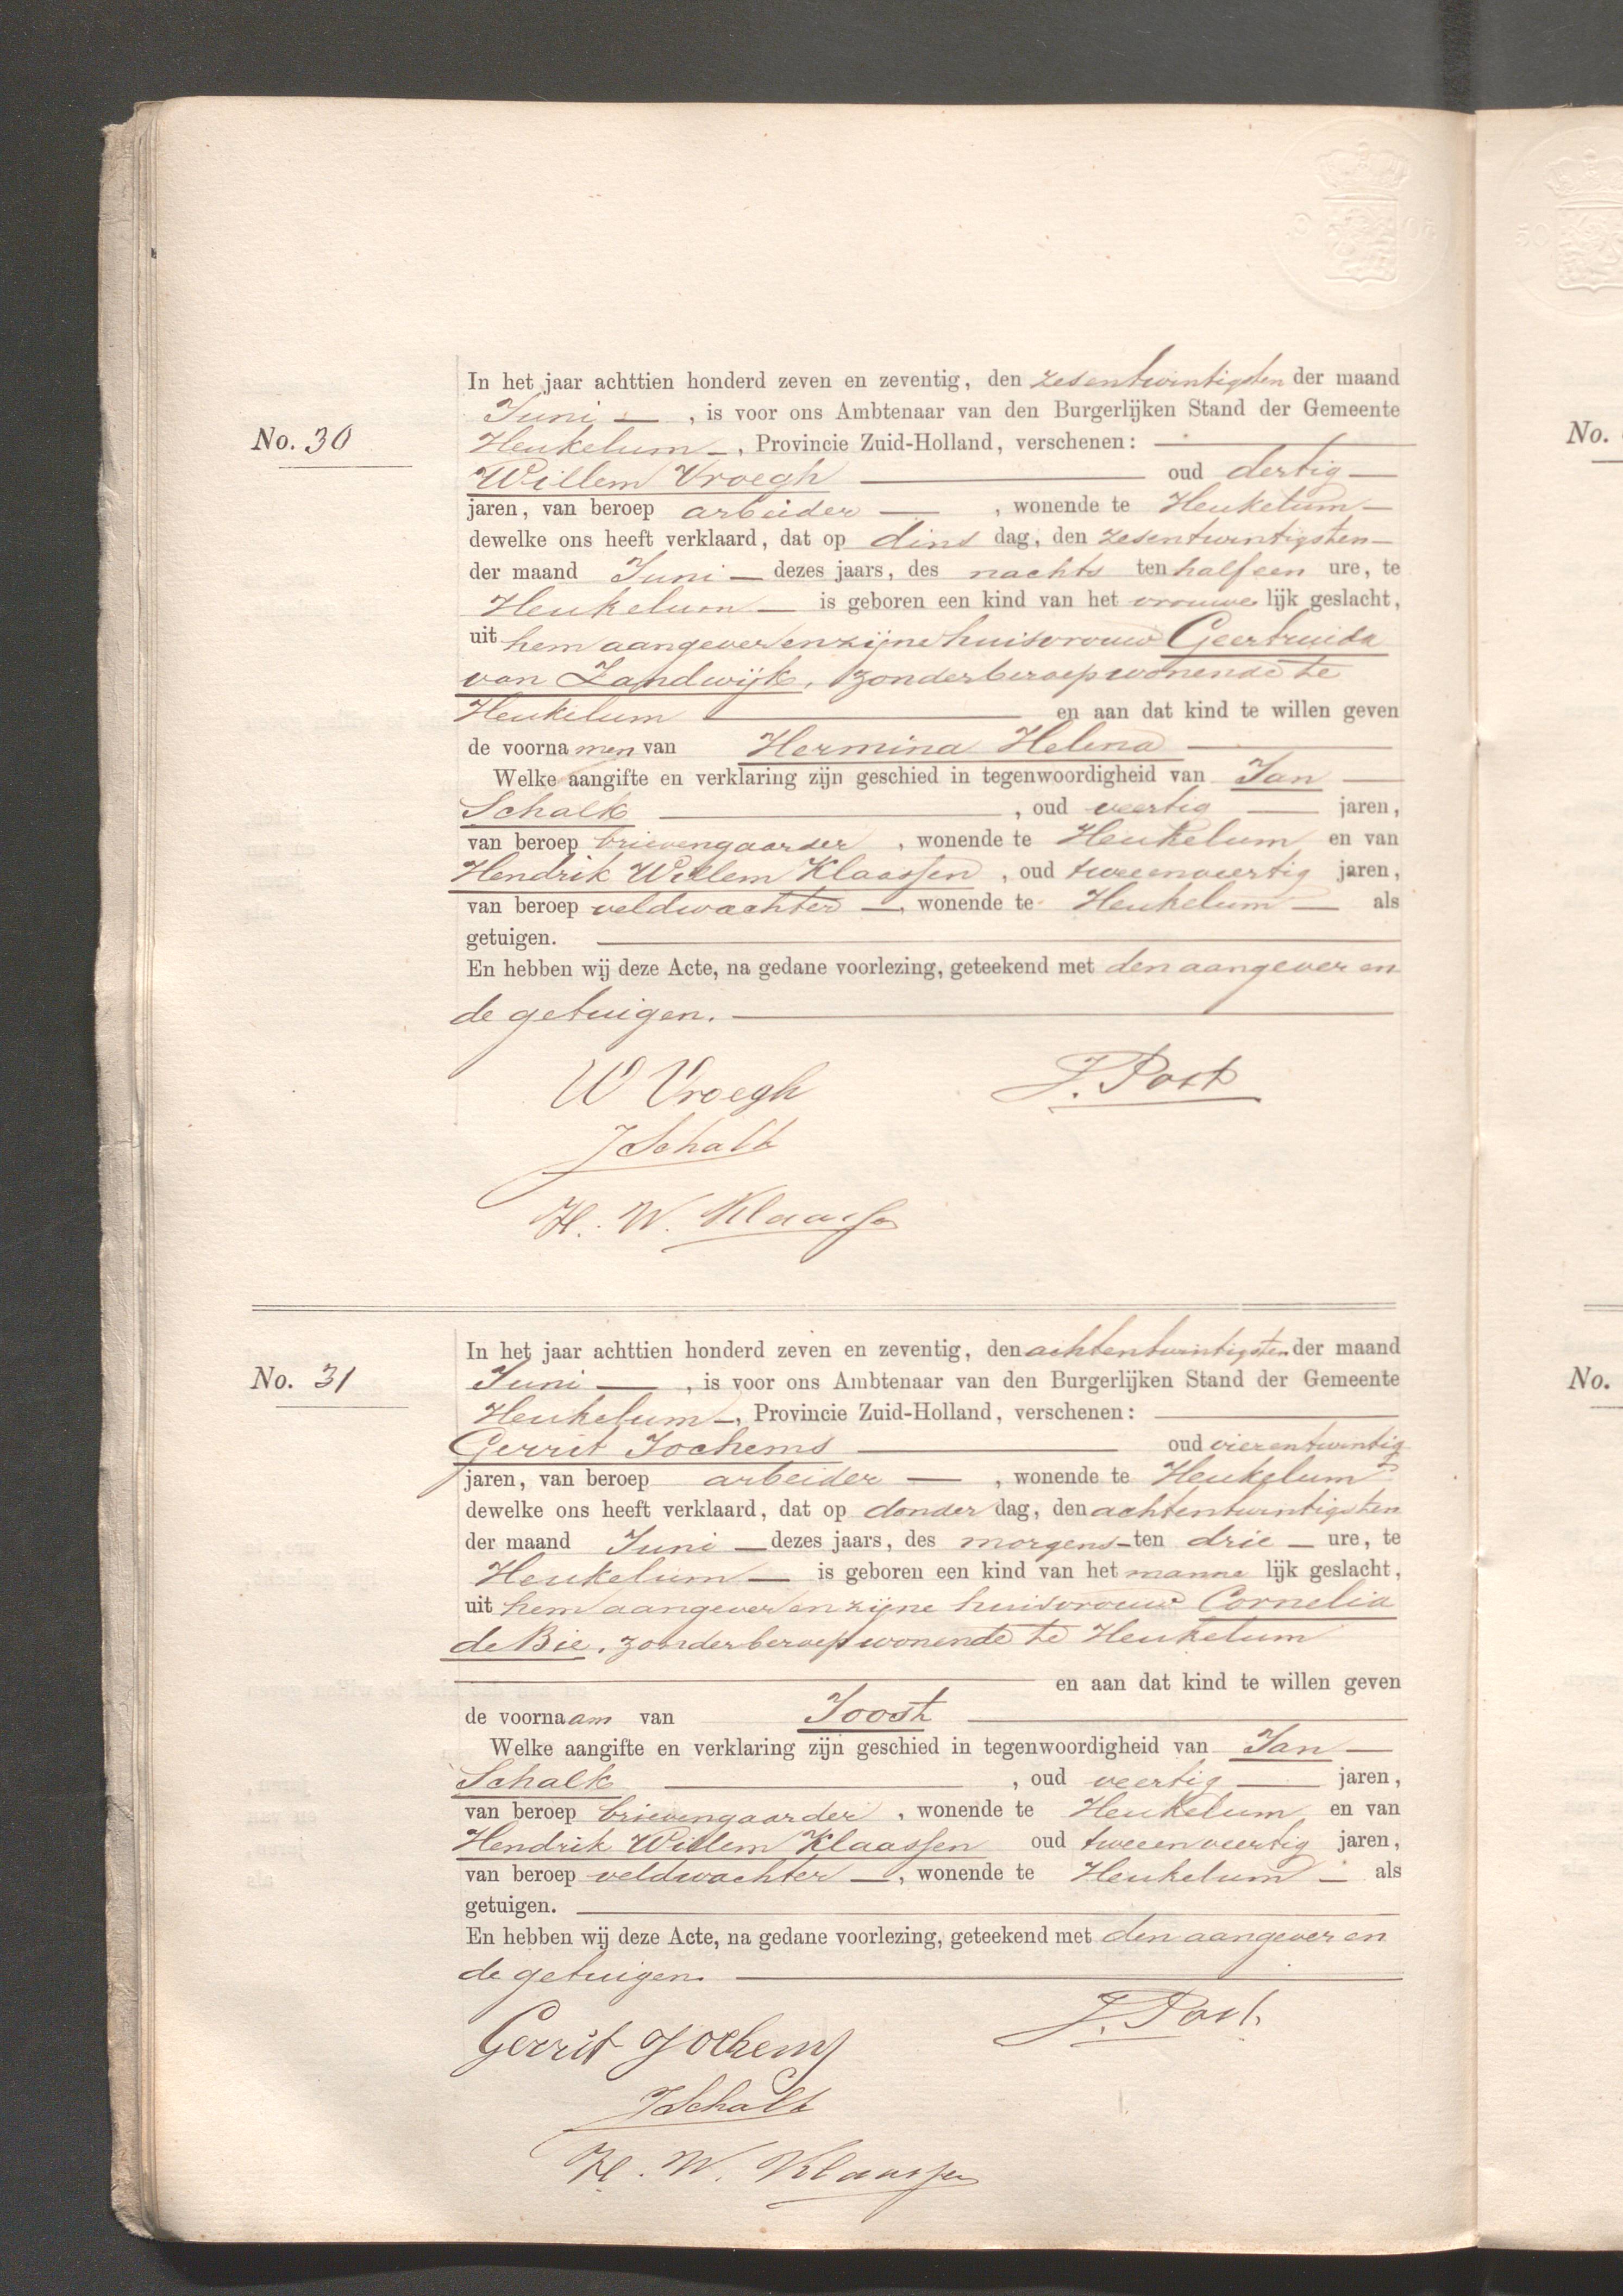 No. 30
In het jaar achttien honderd zeven en zeventig, den zesentwintigsten der maand
Juni —, is voor ons Ambtenaar van den Burgerlijken Stand der Gemeente
Heukelum —, Provincie Zuid-Holland, verschenen: —
Willem Vroegh — oud dertig —
jaren, van beroep arbeider —, wonende te Heukelum —
dewelke ons heeft verklaard, dat op dins dag, den zesentwintigsten —
der maand Juni — dezes jaars, des nachts ten half een ure, te
Heukelum — is geboren een kind van het vrouwe lijk geslacht,
uit hem aangever en zijne huisvrouw Geertruida
van Zandwijk, zonder beroep wonende te
Heukelum — en aan dat kind te willen geven
de voornamen van Hermina Helena —
Welke aangifte en verklaring zijn geschied in tegenwoordigheid van Jan —
Schalk —, oud veertig — jaren,
van beroep brievengaarder, wonende te Heukelum en van
Hendrik Willem Klaassen, oud tweeenveertig jaren,
van beroep veldwachter —, wonende te Heukelum — als
getuigen. —
En hebben wij deze Acte, na gedane voorlezing, geteekend met den aangever en
de getuigen. —
W Vroegh
J. Post
J Schalk
H. W. Klaassen
No. 31
In het jaar achttien honderd zeven en zeventig, den achtentwintigsten der maand
Juni —, is voor ons Ambtenaar van den Burgerlijken Stand der Gemeente
Heukelum —, Provincie Zuid-Holland, verschenen: —
Gerrit Jochems — oud vierentwintig
jaren, van beroep arbeider —, wonende te Heukelum
dewelke ons heeft verklaard, dat op donder dag, den achtentwintigsten
der maand Juni — dezes jaars, des morgens — ten drie — ure, te
Heukelum — is geboren een kind van het manne lijk geslacht,
uit hem aangever en zijne huisvrouw Cornelia
de Bie, zonder beroep wonende te Heukelum
— en aan dat kind te willen geven
de voornaam van Joost —
Welke aangifte en verklaring zijn geschied in tegenwoordigheid van Jan —
Schalk —, oud veertig — jaren,
van beroep brievengaarder, wonende te Heukelum en van
Hendrik Willem Klaassen oud tweeenveertig jaren,
van beroep veldwachter —, wonende te Heukelum — als
getuigen. —
En hebben wij deze Acte, na gedane voorlezing, geteekend met den aangever en
de getuigen. —
J. Post
Gerrit Jochems
J Schalk
H. W. Klaassen
No.
No.